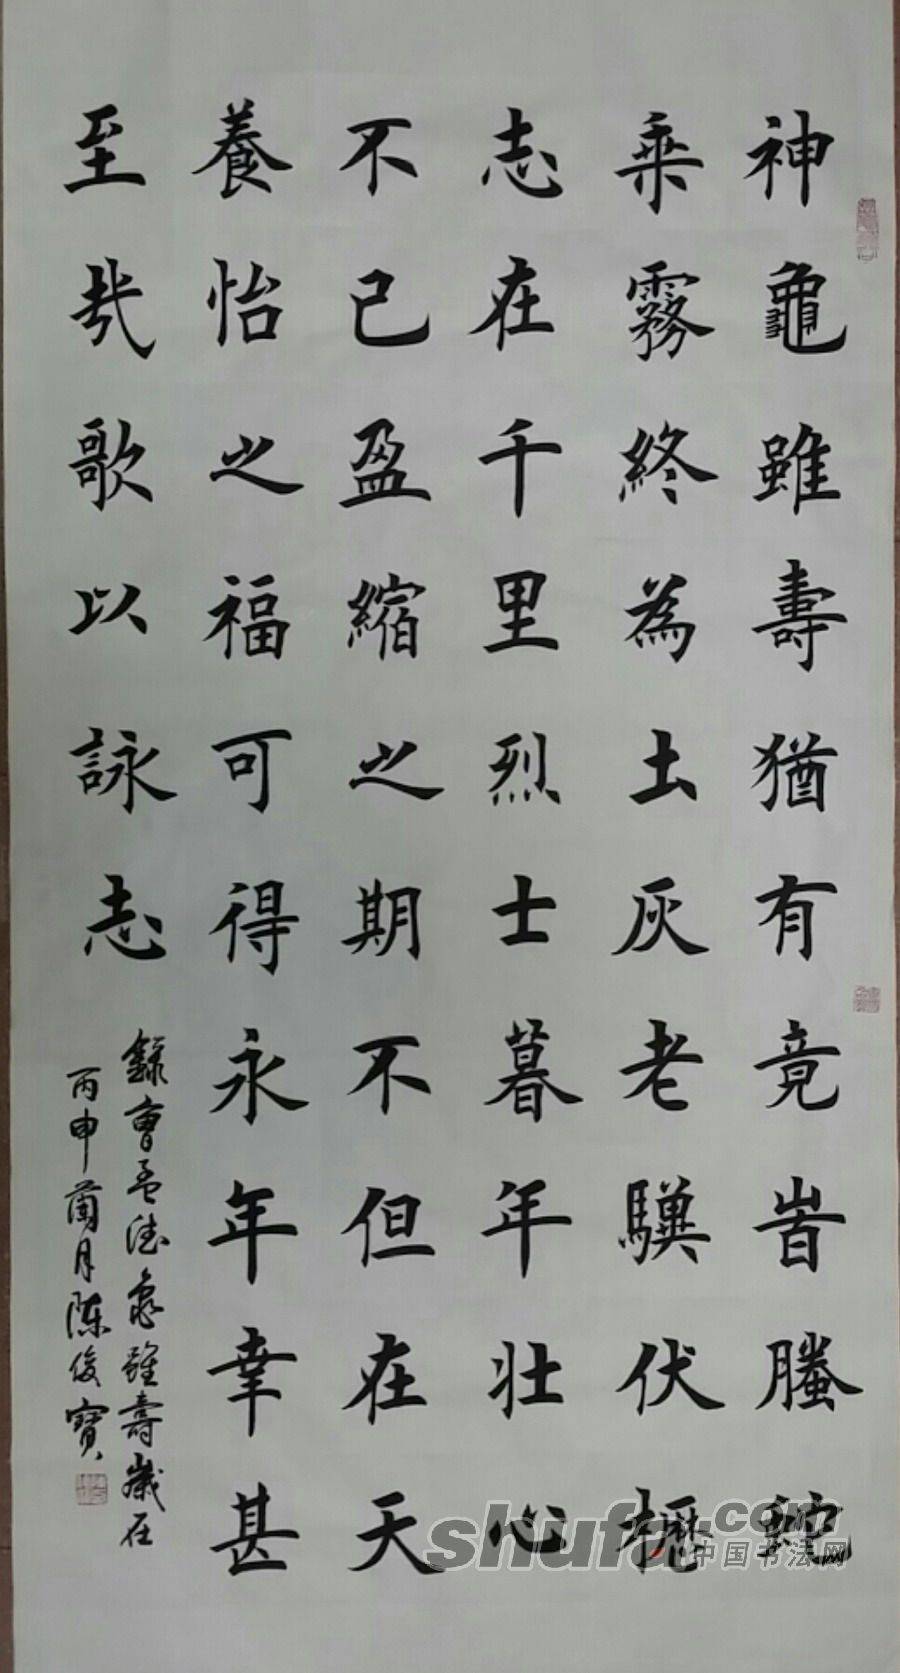 神龜雖壽猶有竟旹螣蛇
乘霧終為土灰老驥伏櫪
志在千里烈士暮年壯心
不已盈縮之期不但在天
養怡之福可得永年幸甚
至哉歌以詠志
錄曹孟德龜雖壽歲在
丙申蘭月陈俊寶
shufa.com
中国书法网